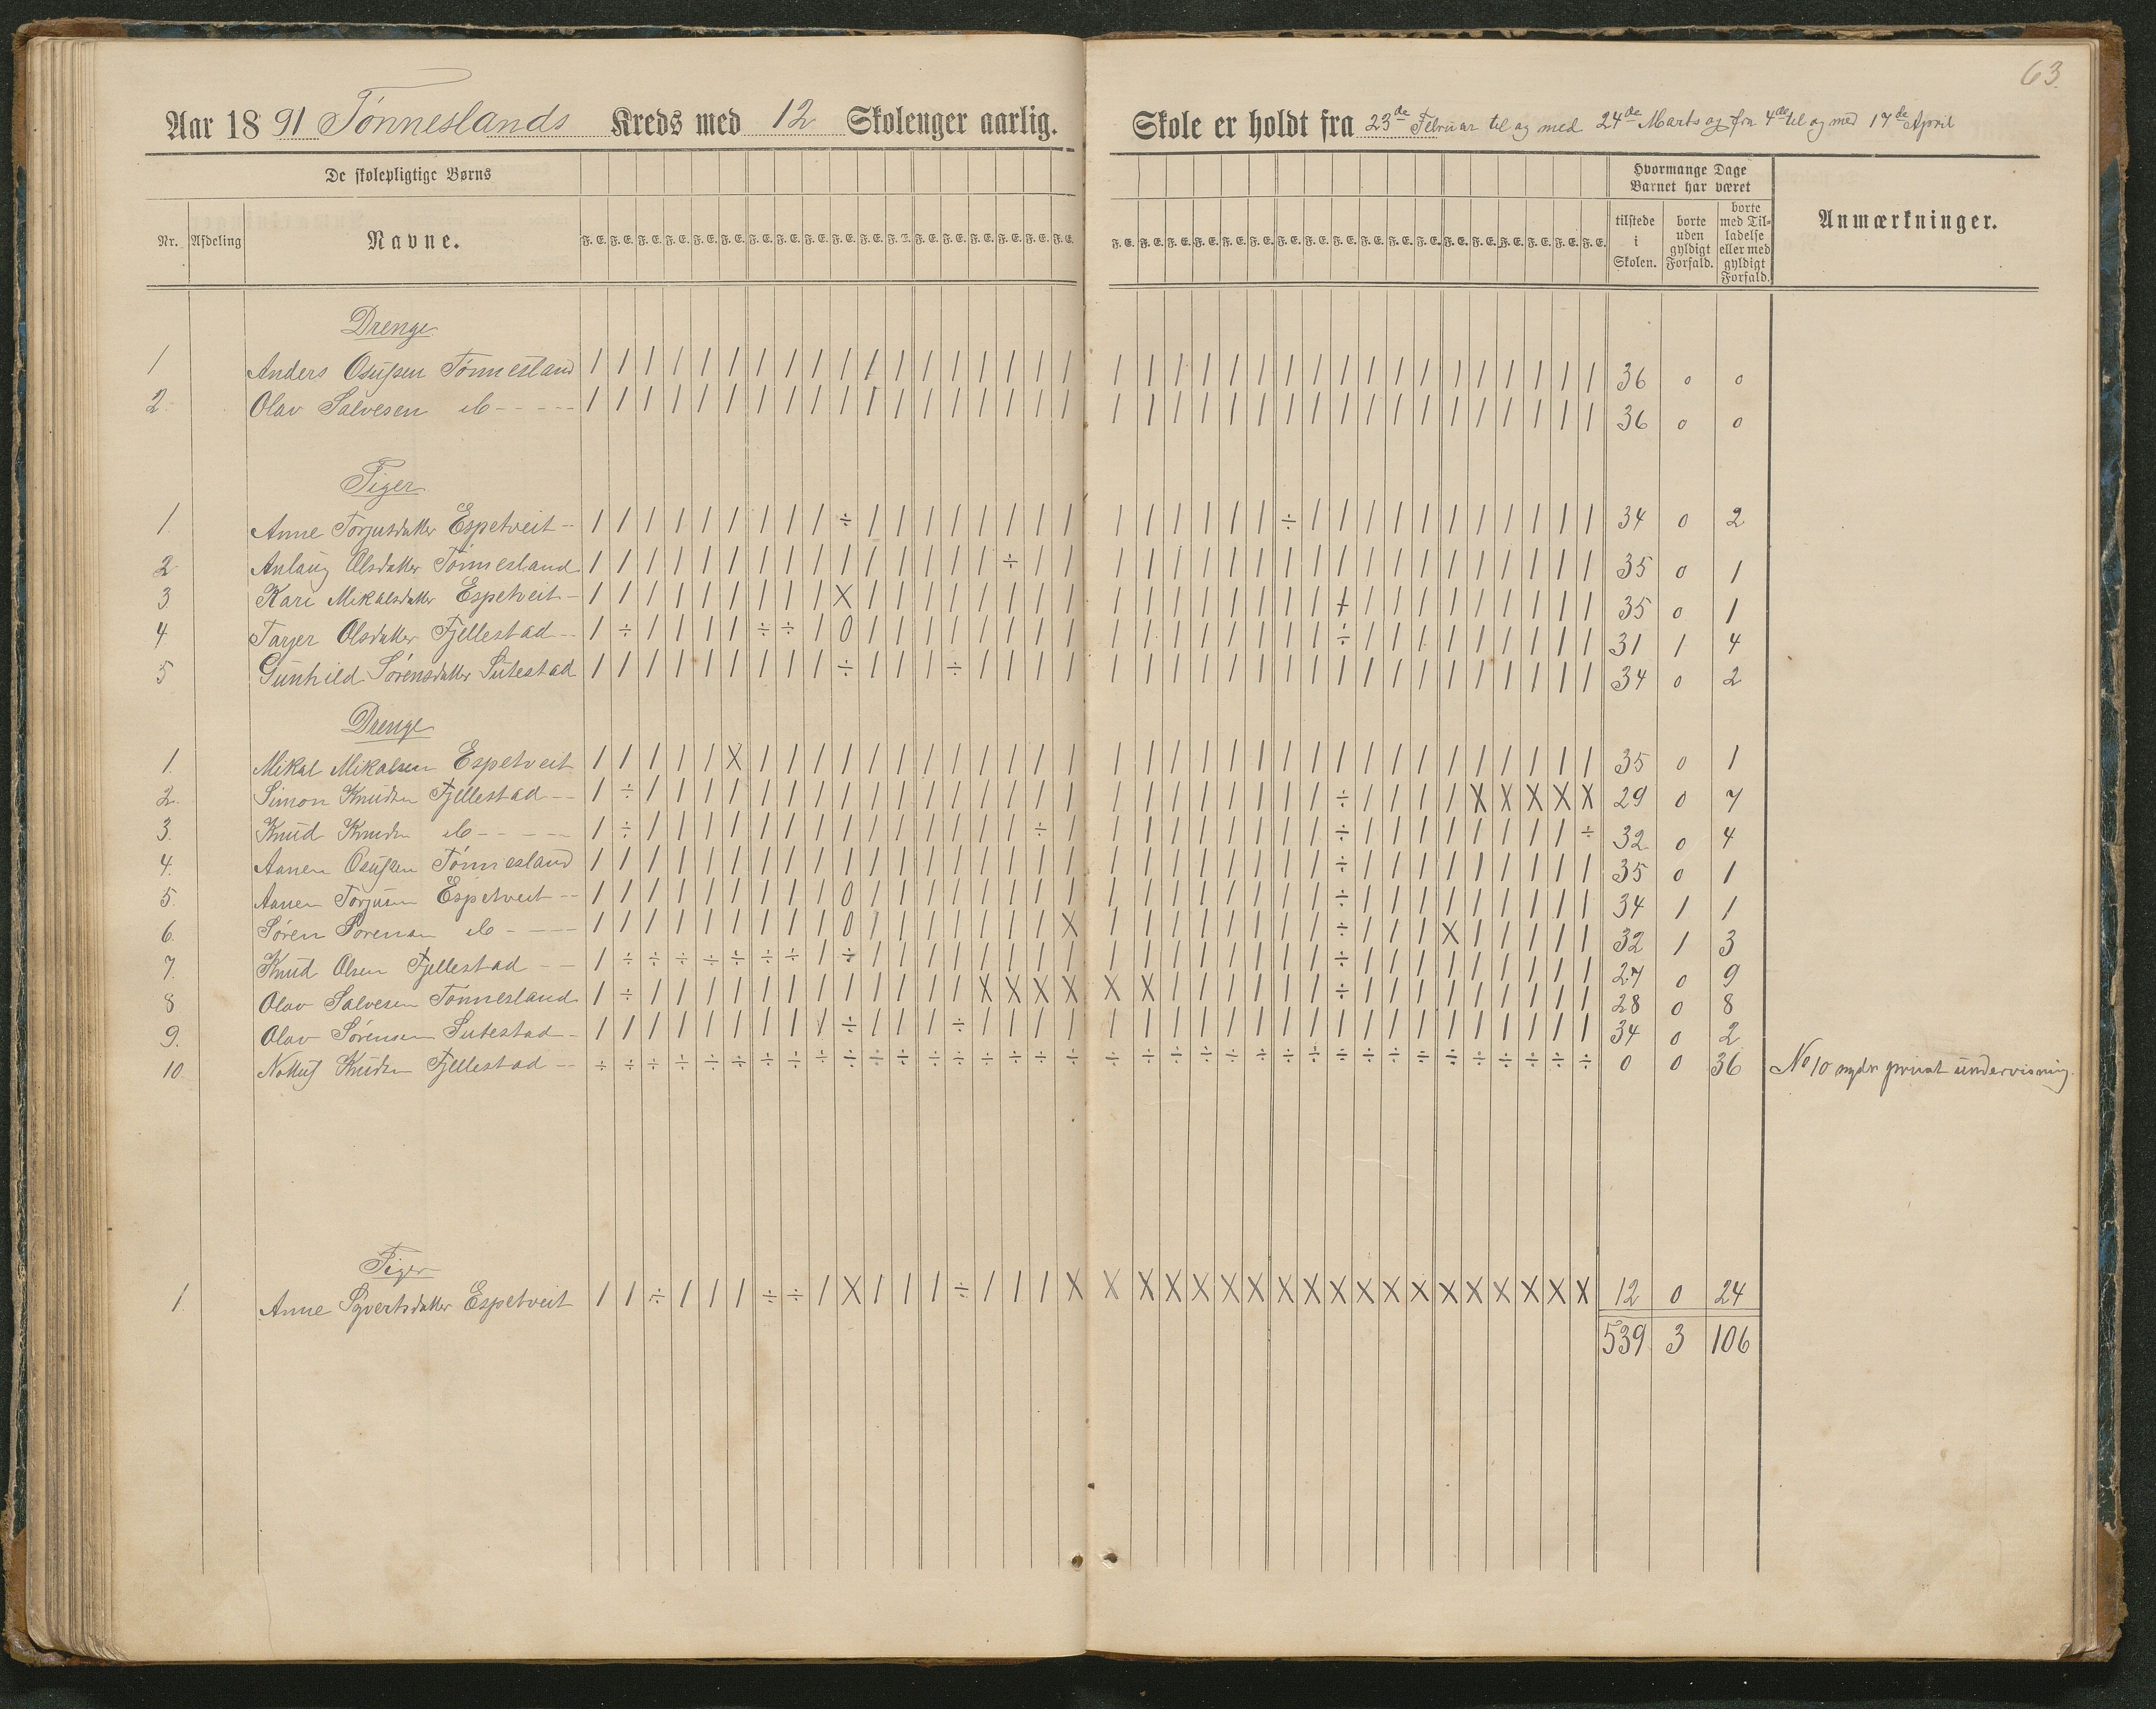 63.
Aar 1891 Tønneslands Kreds med 12 Skoleuger aarlig.
Skole er holdt fra 23de Februar til og med 24de Marts og fra 4de til og med 17de April
De skolepligtige Børns
Hvormange Dage Barnet har været
Nr. Afdeling Navne. F. E. F. E. F. E. F. E. F. E. F. E. F. E. F. E. F. E. F. E. F. E. F. E. F. E. F. E. F. E. F. E. F. E. F. E.
F. E. F. E. F. E. F. E. F. E. F. E. F. E. F. E. F. E. F. E. F. E. F. E. F. E. F. E. F. E. F. E. F. E. F. E. tilstede i Skolen. borte uden gyldigt Forfald. borte med Tilladelse eller med gyldigt Forfald. Anmærkninger.
Drenge
1 Anders Osufsen Tønnesland / / / / / / / / / / / / / / / / / / / / / / / / / / / / / / / / / / / / 36 0 0
2 Olav Salvesen do - - - - - / / / / / / / / / / / / / / / / / / / / / / / / / / / / / / / / / / / / 36 0 0
Piger
1. Anne Torjusdatter Espetveit - / / / / / / / / / ÷ / / / / / / / / / / / / / / ÷ / / / / / / / / / / / 34 0 2
2 Anlaug Olsdatter Tønnesland / / / / / / / / / / / / / / / ÷ / / / / / / / / / / / / / / / / / / / / 35 0 1
3 Kari Mikalsdatter Espetveit - / / / / / / / / / X / / / / / / / / / / / / / / / / / / / / / / / / / / 35 0 1
4 Tarjer Olsdatter Fjellestad - - / ÷ / / / / ÷ ÷ / 0 / / / / / / / / / / / / / / / / ÷ / / / / / / / / / 31 1 4
5 Gunhild Sørensdatter Sutestad / / / / / / / / / ÷ / / / ÷ / / / / / / / / / / / / / / / / / / / / / / 34 0 2
Drenge
1. Mikal Mikalsen Espetveit / / / / / X / / / / / / / / / / / / / / / / / / / / / / / / / / / / / / 35 0 1
2. Simon Knudsen Fjellestad - - / ÷ / / / / / / / / / / / / / / / / / / / / / / / / ÷ / / / / X X X X X 29 0 7
3. Knud Knudsen do - - - - - / ÷ / / / / / / / / / / / / / / ÷ / / / / / / / / / ÷ / / / / / / / / ÷ 32 0 4
4. Aanen Osufsen Tønnesland / / / / / / / / / / / / / / / / / / / / / / / / / / ÷ / / / / / / / / / 35 0 1
5. Aanen Torjusen Espetveit - - / / / / / / / / / 0 / / / / / / / / / / / / / / / / ÷ / / / / / / / / / 34 1 1
6. Søren Sørensen do - - - - / / / / / / / / / 0 / / / / / / / X / / / / / / / / ÷ / / / X / / / / / 32 1 3
7. Knud Olsen Fjellestad - - / ÷ ÷ ÷ ÷ ÷ ÷ ÷ / ÷ / / / / / / / / / / / / / / / / ÷ / / / / / / / / / 27 0 9
8 Olav Salvesen Tønnesland / ÷ / / / / / / / / / / / / X X X X X X / / / / / / ÷ / / / / / / / / / 28 0 8
9. Olav Sørensen Sutestad - / / / / / / / / / ÷ / / / ÷ / / / / / / / / / / / / / / / / / / / / / / 34 0 2
10 Knudsen Fjellestad - - ÷ ÷ ÷ ÷ ÷ ÷ ÷ ÷ ÷ ÷ ÷ ÷ ÷ ÷ ÷ ÷ ÷ ÷ ÷ ÷ ÷ ÷ ÷ ÷ ÷ ÷ ÷ ÷ ÷ ÷ ÷ ÷ ÷ ÷ ÷ ÷ 0 0 36 No 10 nyder privat undervisning.
Piger
1. Anne Syvertsdatter Espetveit / / ÷ / / / ÷ ÷ / X / / / ÷ / / / X X X X X X X X X X X X X X X X X X X 12 0 24
539 3 106